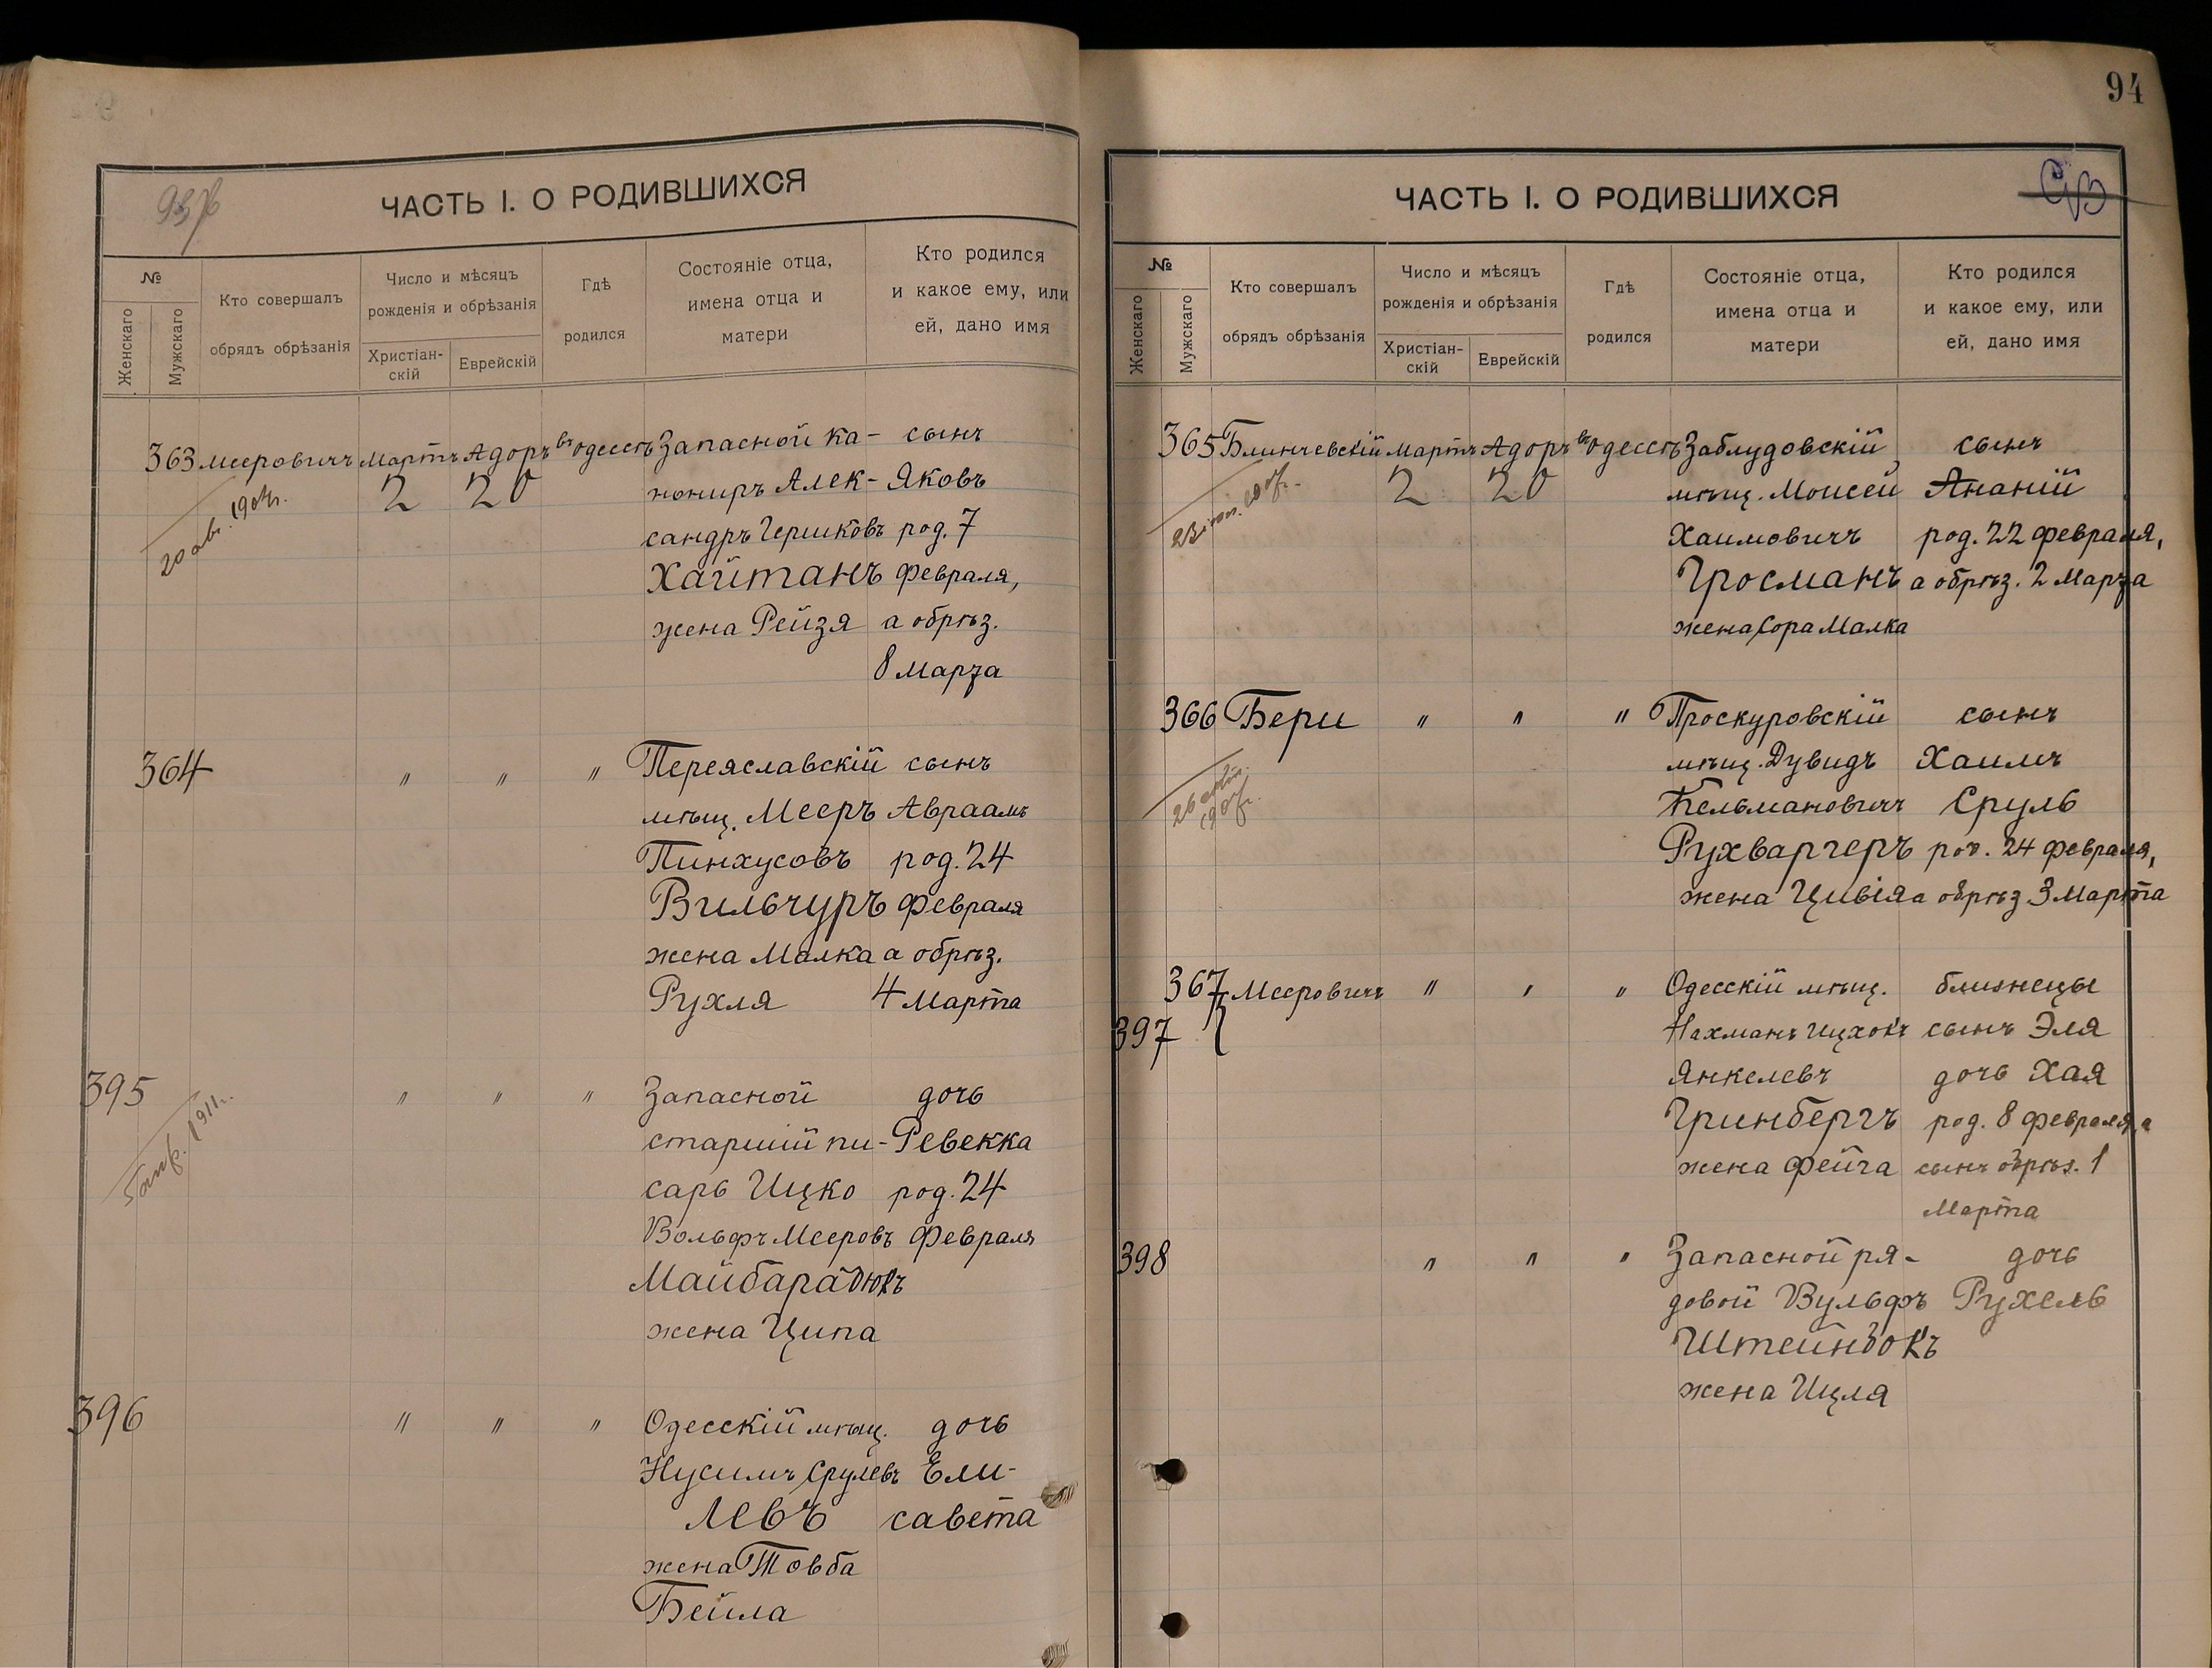 ЧАСТЬ I. О РОДИВШИХСЯ
№
Женскаго
Мужскаго
Кто совершалъ
обрядъ обрѣзанія
Число и мѣсяцъ
рожденія и обрѣзанія
Христіан-
скій
Еврейскій
Гдѣ
родился
Состояніе отца,
имена отца и
матери
Кто родился
и какое ему, или
ей, дано имя
363 Мееровичъ Мартъ Адоръ въ Одессѣ Запасной ка- сынъ
2 20 нониръ Алек- Яковъ
сандръ Гершковъ род. 7
Хайтанъ февраля,
жена Рейзя а обрѣз.
8 Марта
20 авг. 1904г.
364 " " " Переяславскій сынъ
мѣщ. Мееръ Авраамъ
Пинхусовъ род. 24
Вильчуръ февраля
жена Малка а обрѣз.
Рухля 4 Марта
395 " " " Запасной дочь
старшій пи- Ревекка
сарь Ицко род. 24
Вольфъ Мееровъ февраля
Майбарадюкъ
жена Ципа
1911г.
396 " " " Одесскій мѣщ. дочь
Нусимъ Срулевъ Ели-
Левъ савета
жена Товба
Бейла
94
ЧАСТЬ I. О РОДИВШИХСЯ
№
Женскаго
Мужскаго
Кто совершалъ
обрядъ обрѣзанія
Число и мѣсяцъ
рожденія и обрѣзанія
Христіан-
скій
Еврейскій
Гдѣ
родился
Состояніе отца,
имена отца и
матери
Кто родился
и какое ему, или
ей, дано имя
365 Блинчевскій Мартъ Адоръ въ Одессѣ Заблудовскій сынъ
2 20 мѣщ. Моисей Ананій
Хаимовичъ род. 22 февраля,
Гросманъ а обрѣз. 2 Марта
жена Сора Малка
366 Бери " " " Проскуровскій сынъ
мѣщ. Дувидъ Хаимъ
Кельмановичъ Сруль
Рухваргеръ род. 24 февраля,
жена Цивія а обрѣз 3 Марта
367 Мееровичъ " " " Одесскій мѣщ. близнецы
397 Нахманъ Ицхокъ сынъ Эля
Янкелевъ дочь Хая
Гринбергъ род. 8 февраля, а
жена Фейга сынъ обрѣз. 1
Марта
398 " " " Запасной ря- дочь
довой Вульфъ Рухель
Штейнбокъ
жена Ицля